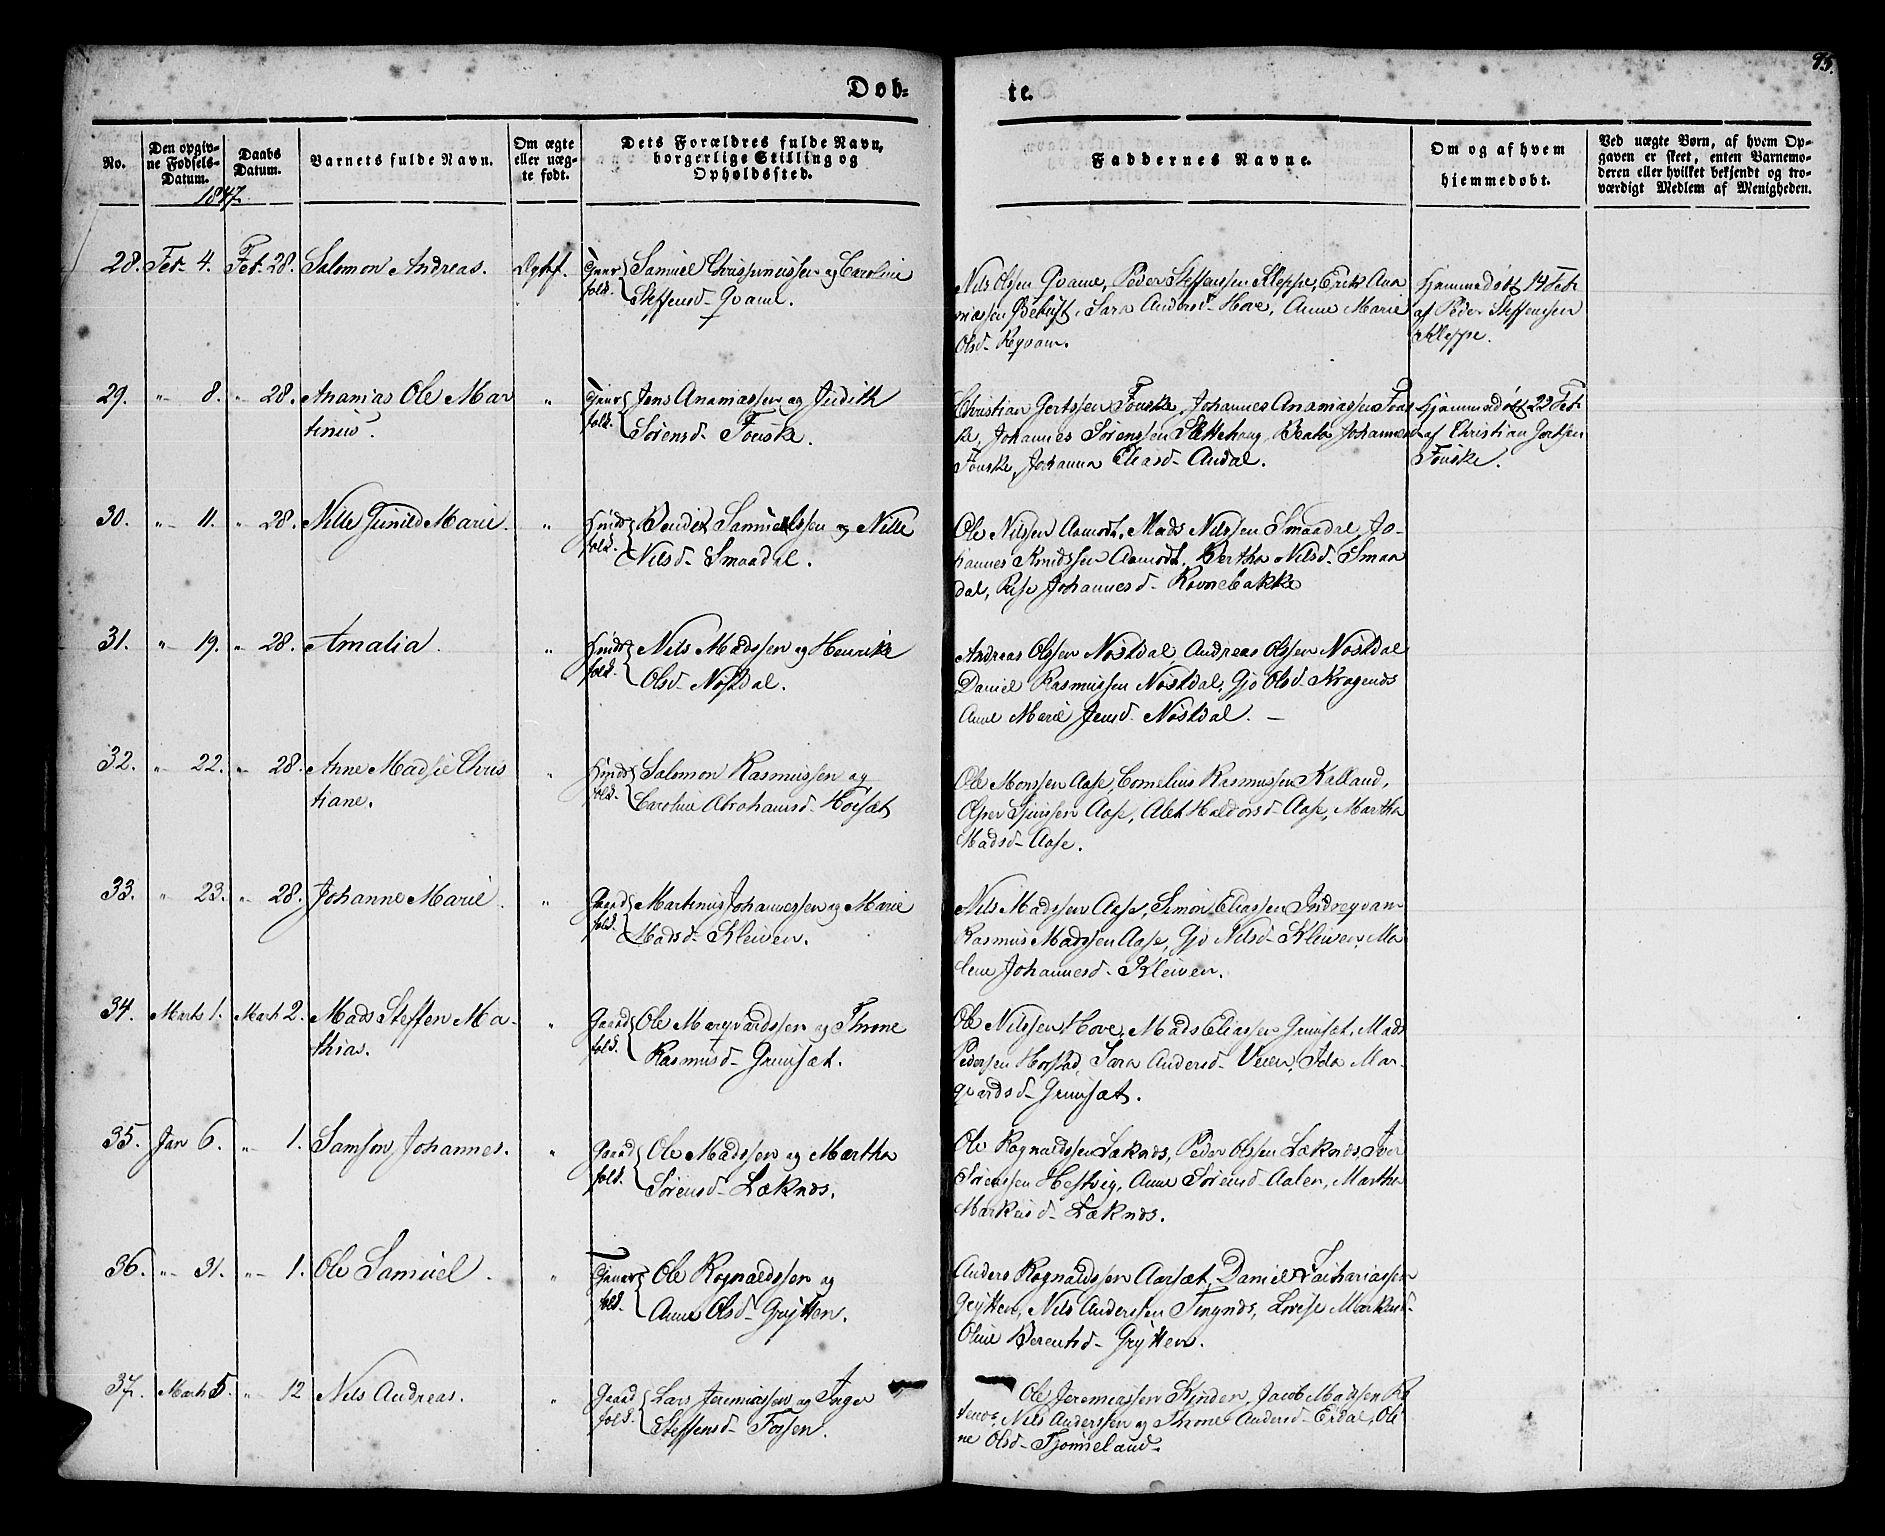 95.
Døb-
te.
No.
Den opgiv-
ne Fødsels-
Datum.
Daabs
Datum.
1847.
Barnets fulde Navn.
Om ægte
eller uæg-
te født.
Dets Forældres fulde Navn,
borgerlige Stilling og
Opholdssted.
Faddernes Navne.
Om og af hvem
hjemmedøbt.
Ved uægte Børn, af hvem Op-
gaven er skeet, enten Barnemo-
deren eller hvilket bekjendt og tro-
værdigt Medlem af Menigheden.
28. Feb. 4. Feb. 28. Salomon Andreas. Ægtef.
Samuel Chrissmussen og Caroline
Steffensd- Qvame.
Nils Olsen Qvame, Peder Steffensen Kleppe, Erik Ana
Sara Andersd- Hove, Anne Marie
Olsd-
Hjemmedøbt 14 Feb
af Peder Steffensen
Kleppe.
29. " 8. " 28. Ananias Ole Mar
tinus.
"
Jens Ananiassen og Judith
Sørensd- Fonske.
Christian Gertssen Fonske, Johannes Ananiassen Fons
ke, Johannes Sørenssen Beate Johannesd
Fonske, Johanna Eliasd- Andal.
Hjemmedøbt 22 Feb
af Christian Gertsen
Fonske.
30. " 11. " 28. Nille Gunild Marie.
"
Bendix Samuelssen og Nille
Nilsd- Smaadal.
Ole Nilssen Aamodt, Mads Nilssen Smaadal, Jo-
hannes Knudssen Aamodt, Bertha Nilsd- Smaa
dal, Johannesd- Rovnebakke
31. " 19. " 28. Amalia.
"
Nils Madssen og Henrike
Olsd- Nøstdal.
Andreas Olssen Nøstdal, Andreas Olssen Nøstdal
Daniel Rasmussen Nøstdal, Gjø Olsd-
Anne Marie Jensd- Nøstdal. -
32. " 22. " 28. Anne Madsie Chris
tiane.
"
Salomon Rasmussen og
Caroline Abrahamsd-
Ole Monssen Aase, Cornelius Rasmussen Kalland,
Aase, Halvorsd- Aase, Martha
Madsd- Aase.
33. " 23. " 28. Johanne Marie.
"
Gaard
fold.
Martinus Johannessen og Marie
Madsd- Kleiven.
Nils Madssen Aase, Simon Eliassen Indreqvam
Rasmus Madssen Aase, Gjø Nilsd- Kleiven, Ma
lene Johannesd- Kleiven.
34. Marts 1. Mart 2. Mads Steffen Ma-
thias.
"
Gaard
fold.
Ole Marqvardssen og Thrine
Rasmusd- Grimsæt.
Ole Nilssen Hove, Mads Eliassen Grimsæt, Mads
Pedersen Horstad, Sara Andersd- Veien, Ida Mar-
qvardsd- Grimsæt.
35. Jan 6. " 1. Samson Johannes.
"
Gaard
fold.
Ole Madssen og Martha
Sørensd- Læknæs.
Ole Rognaldssen Læknæs, Peder Olssen Læknæs, Iver
Sørenssen Hestvig, Anne Sørensd- Aalen, Martha
Markusd- Læknæs.
36. " 31. " 1. Ole Samuel.
"
Ole Rognaldssen og
Anne Olsd- Grytten.
Anders Rognaldssen Aarsæt, Daniel Zachariassen
Grytten, Nils Anderssen Tingnæs, Lovise Markusd-
Oline Berentsd- Grytten.
37. Marts 5. " 12 Nils Andreas.
"
Gaard
fold.
Lars Jeremiassen og Inger
Steffensd- Forsen.
Ole Jeremiassen Jacob Madssen
Nils Anderssen og Thrine Andersd- Erdal, Oli-
ne Olsd-